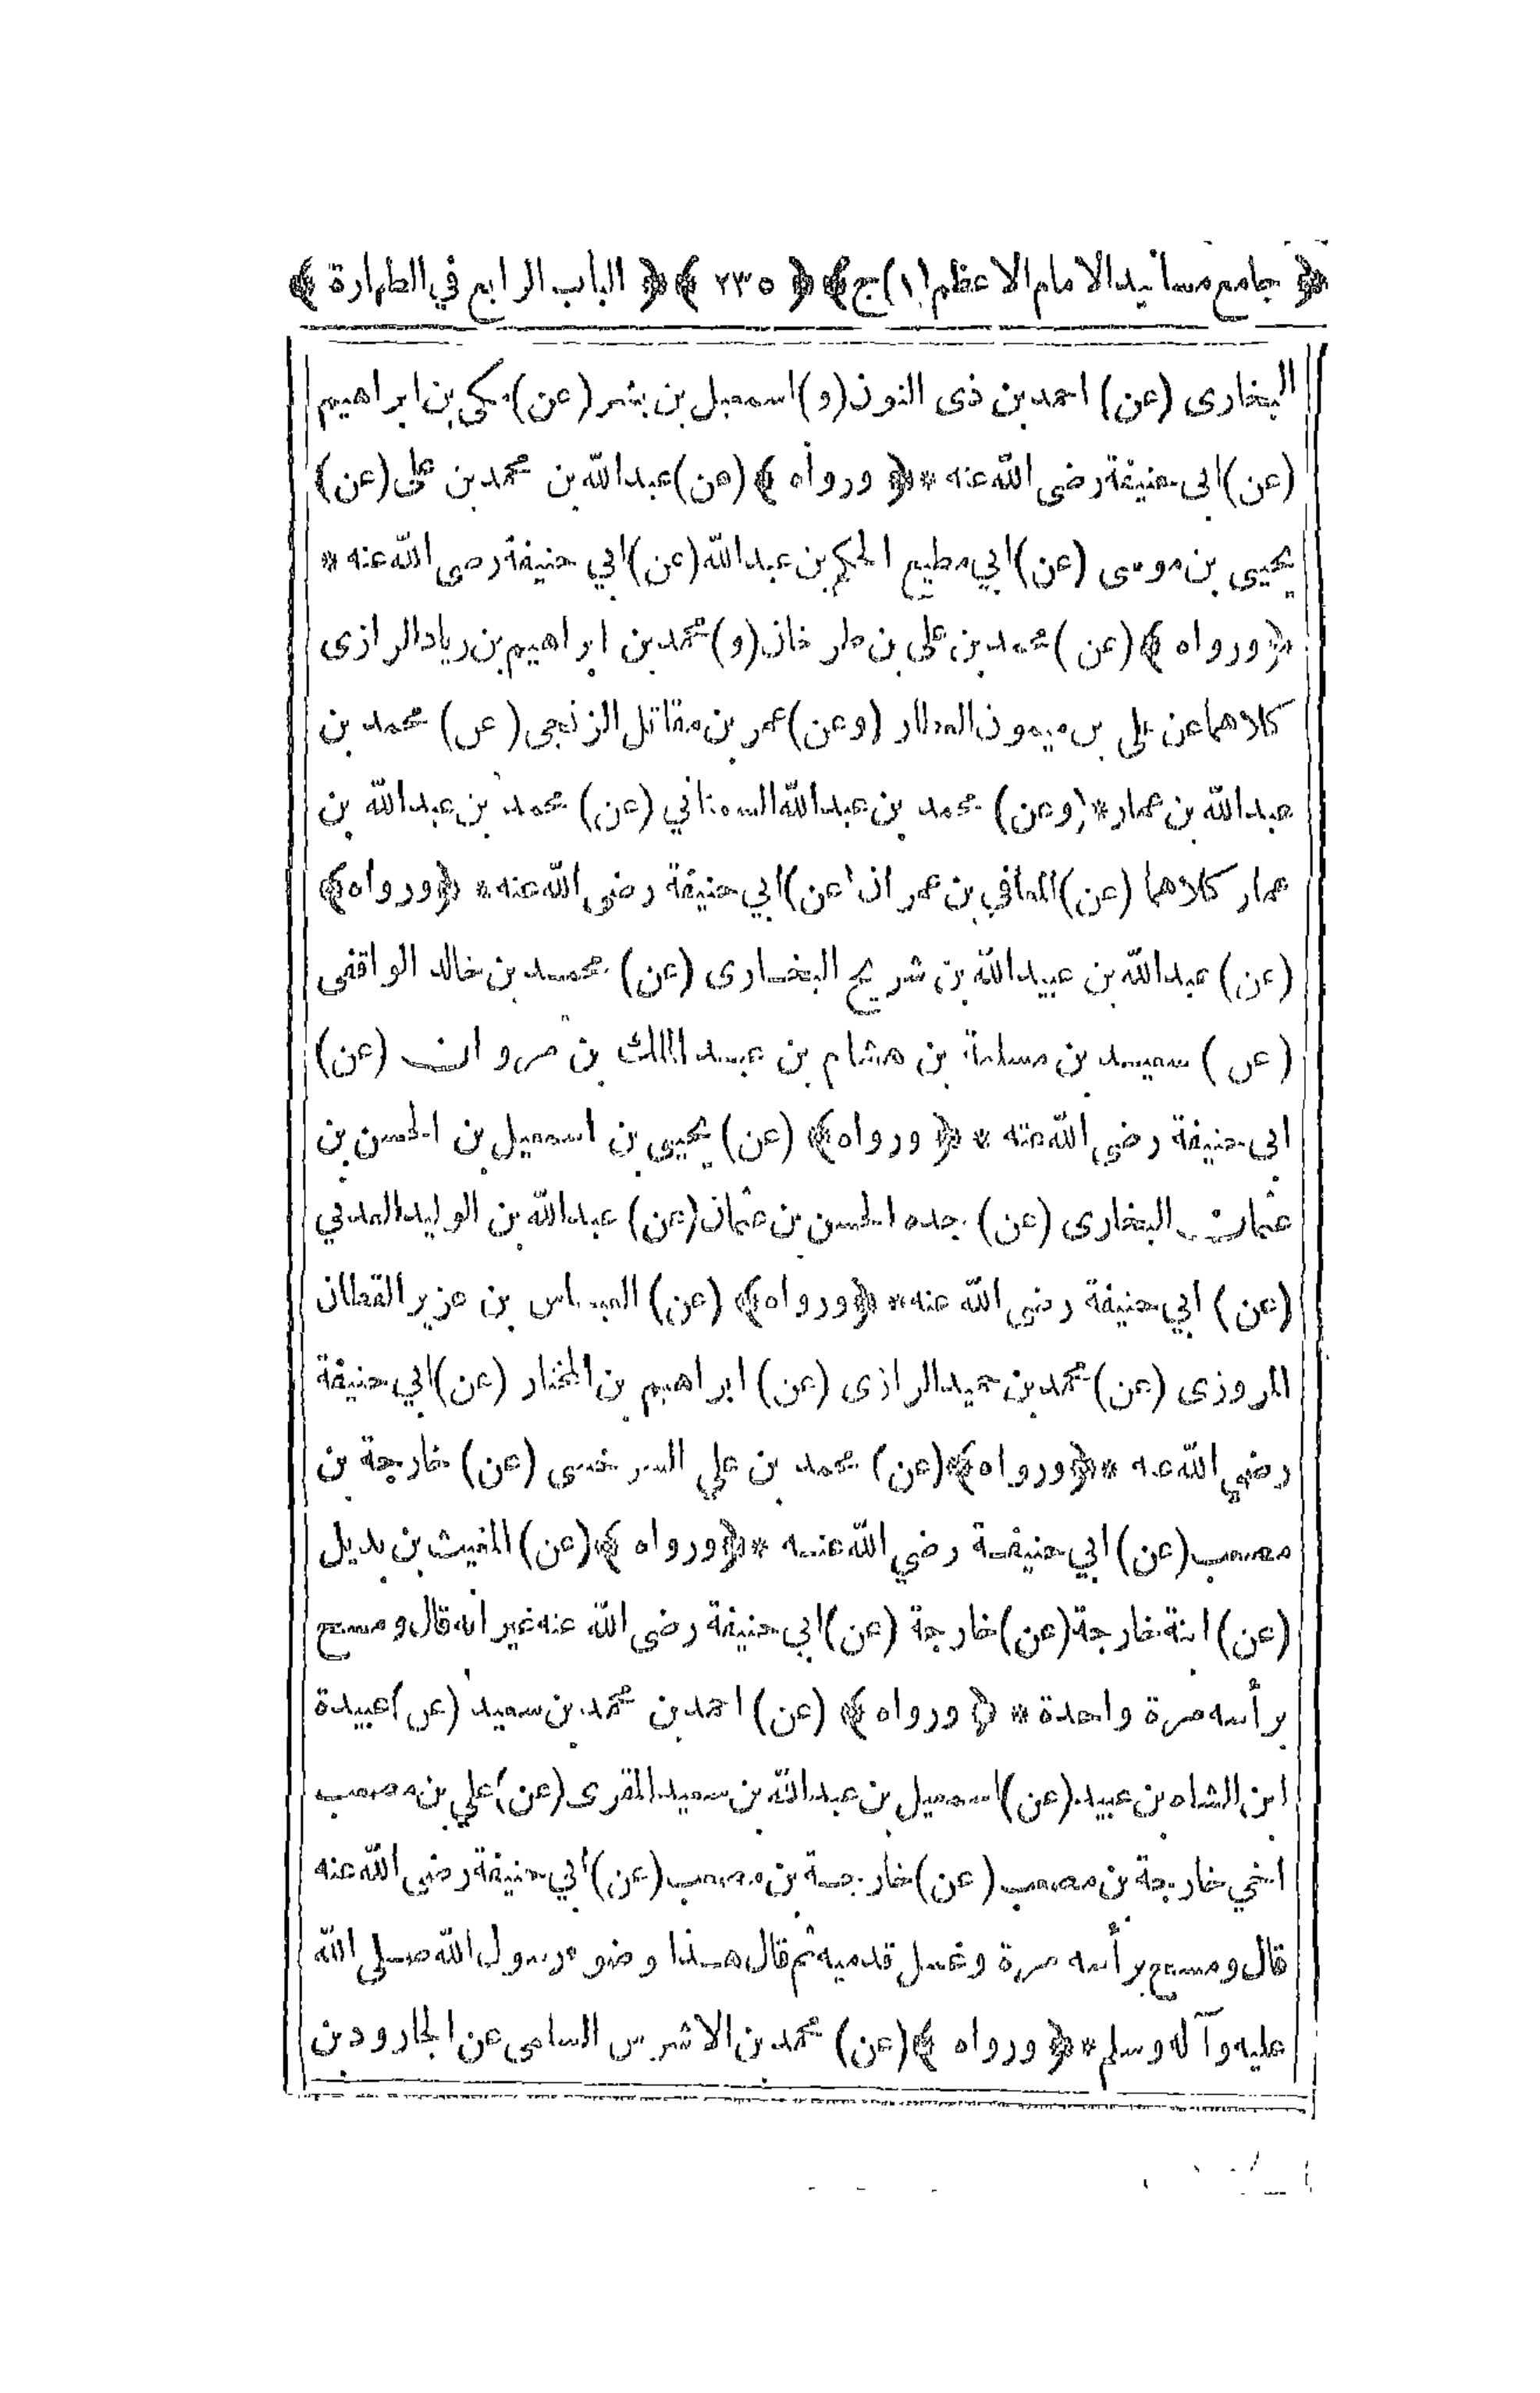 ﴿ جامع مسانيد الامام الاعظم (١) ج﴾ ﴿ ٢٣٥ ﴾ ﴿ الباب الرابع في الطهارة ﴾
البخارى (عن) احمد بن ذى النون (و) اسمعيل بن بشر (عن) مكي بن ابراهيم
(عن) ابى حنيفة رضى الله عنه * ﴿ ورواه ﴾ (عن) عبدالله بن محمد بن على (عن)
يحيى بن موسى (عن) ابي مطيع الحكم بن عبدالله (عن) ابي حنيفة رضى الله عنه *
﴿ ورواه ﴾ (عن) محمد بن على بن طرخان (و) محمد بن ابراهيم بن زياد الرازى
كلاهما عن على بن ميمون العطار (وعن) عمر بن مقاتل الزنجى (عن) محمد بن
عبدالله بن عمار * (وعن) محمد بن عبدالله السمناني (عن) محمد بن عبدالله بن
عمار كلاهما (عن) المعافي بن عمران (عن) ابي حنيفة رضى الله عنه * ﴿ورواه﴾
(عن) عبدالله بن عبيدالله بن شريح البخارى (عن) محمد بن خالد الواقفى
(عن) سعيد بن مسلمة بن هشام بن عبد الملك بن مروان (عن)
ابى حنيفة رضي الله عنه * ﴿ ورواه﴾ (عن) يحيى بن اسمعيل بن الحسن بن
عثمان البخارى (عن) جده الحسن بن عثمان (عن) عبدالله بن الوليد العدني
(عن) ابي حنيفة رضى الله عنه * ﴿ورواه﴾ (عن) العباس بن عزير القطان
المروزى (عن) محمد بن حميد الرازى (عن) ابراهيم بن المختار (عن) ابي حنيفة
رضي الله عنه * ﴿ورواه﴾ (عن) محمد بن علي السرخسى (عن) خارجة بن
مصعب (عن) ابي حنيفة رضي الله عنه * ﴿ورواه ﴾ (عن) المغيث بن بديل
(عن) ابنة خارجة (عن) خارجة (عن) ابي حنيفة رضى الله عنه غير انه قال ومسح
برأسه مرة واحدة * ﴿ ورواه ﴾ (عن) احمد بن محمد بن سعيد (عن) عبيدة
ابن الشاه بن عبيد (عن) اسمعيل بن عبدالله بن سعيد المقرى (عن) علي بن مصعب
اخي خارجة بن مصعب (عن) خارجة بن مصعب (عن) ابي حنيفة رضى الله عنه
قال ومسح برأسه مرة وغسل قدميه ثم قال هذا وضوء رسول الله صلى الله
عليه وآله وسلم * ﴿ ورواه ﴾ (عن) محمد بن الاشرس السلمى عن الجارود بن